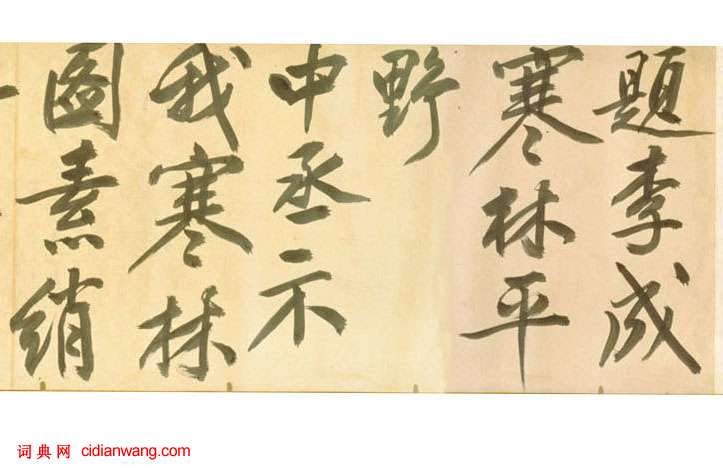 題李成
寒林平
野
中丞示
我寒林
圖素綃
词典网 cidianwang.com